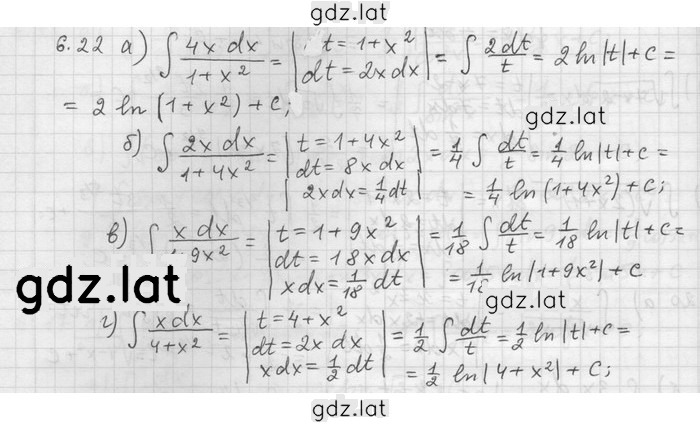 gdz.lat
6.22 а) ∫ 4x dx / 1+x² = | t=1+x² dt=2x dx | = ∫ 2dt / t = 2 ln|t|+c =
= 2 ln (1+x²)+c;
gdz.lat
б) ∫ 2x dx / 1+4x² = | t=1+4x² dt=8x dx 2x dx=1/4 dt | = 1/4 ∫ dt / t = 1/4 ln|t|+c =
= 1/4 ln(1+4x²)+c;
в) ∫ x dx / 1+9x² = | t=1+9x² dt=18x dx x dx=1/18 dt | = 1/18 ∫ dt / t = 1/18 ln|t|+c =
= 1/18 ln|1+9x²|+c
gdz.lat
gdz.lat
г) ∫ x dx / 4+x² = | t=4+x² dt=2x dx x dx=1/2 dt | = 1/2 ∫ dt / t = 1/2 ln|t|+c =
= 1/2 ln|4+x²|+c;
gdz.lat